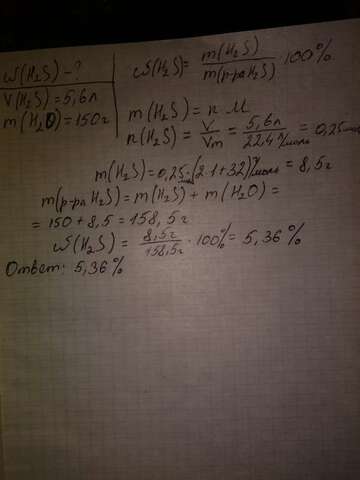 ω(H₂S) - ?
V(H₂S) = 5,6л
m(H₂O) = 150г
ω(H₂S) = m(H₂S) / m(р-ра H₂S) · 100%
m(H₂S) = n · M
n(H₂S) = V / Vm = 5,6л / 22,4 л/моль = 0,25моль
m(H₂S) = 0,25моль · (2·1+32) г/моль = 8,5г
m(р-ра H₂S) = m(H₂S) + m(H₂O) =
= 150 + 8,5 = 158,5г
ω(H₂S) = 8,5г / 158,5г · 100% = 5,36%
Ответ: 5,36%